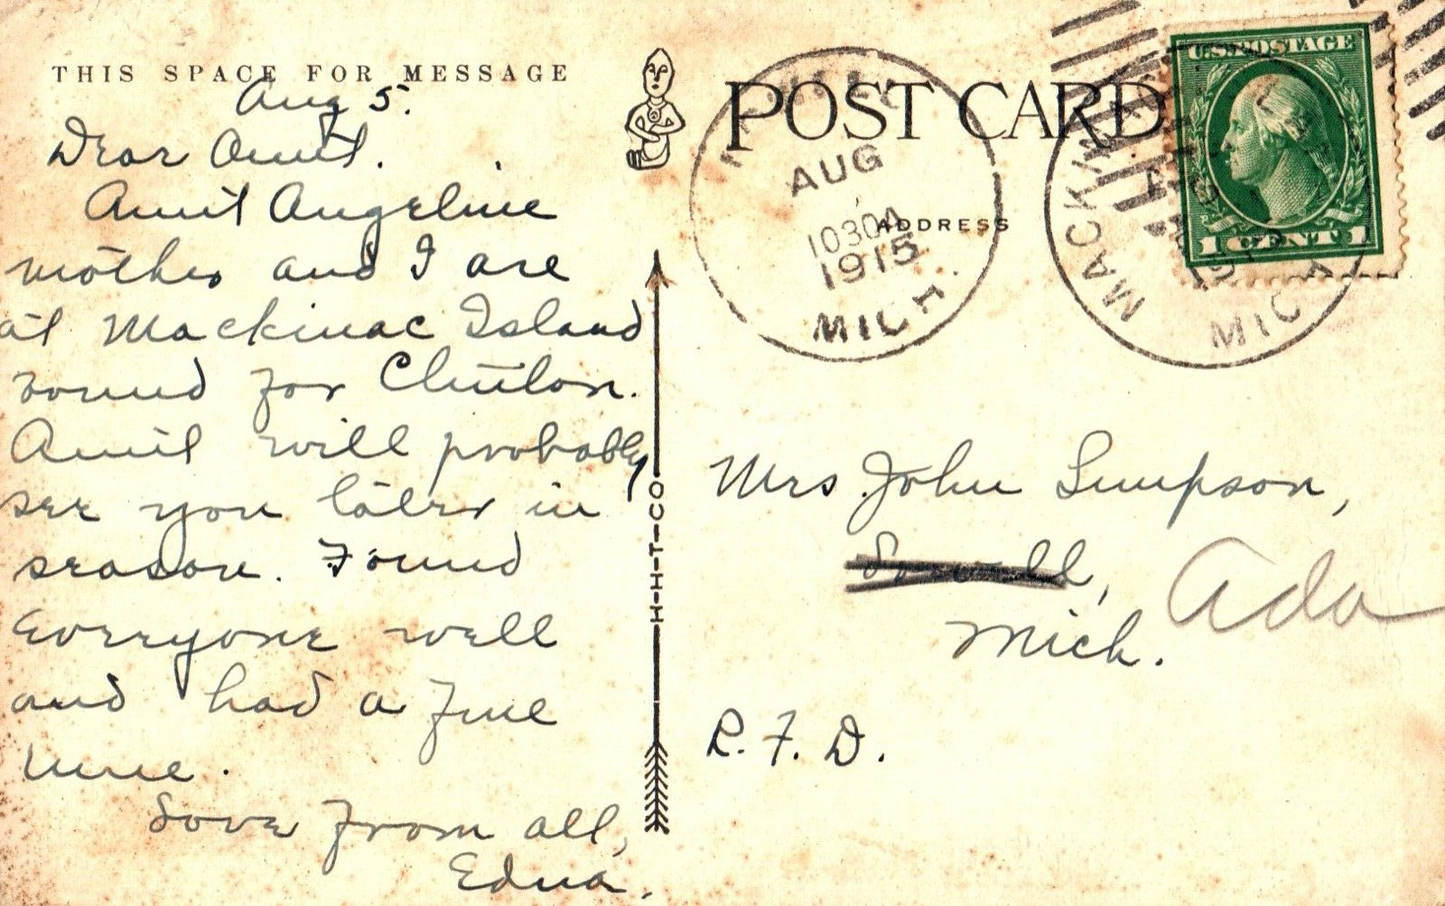 THIS SPACE FOR MESSAGE
Aug 5.
Dear Aunt.
Aunt Angeline
mother and I are
at Mackinac Island
bound for Clinton.
Aunt will probably
see you later in
season. Found
everyone well
and had a fine
time.
Love from all,
Edna.
H-H-T-CO
POST CARD
ADDRESS
AUG
1030A
1915
MICH
MACKINAC
MICH
U.S. POSTAGE
1 CENT 1
Mrs John Simpson,
Lowell,
Ada
Mich.
R.F.D.